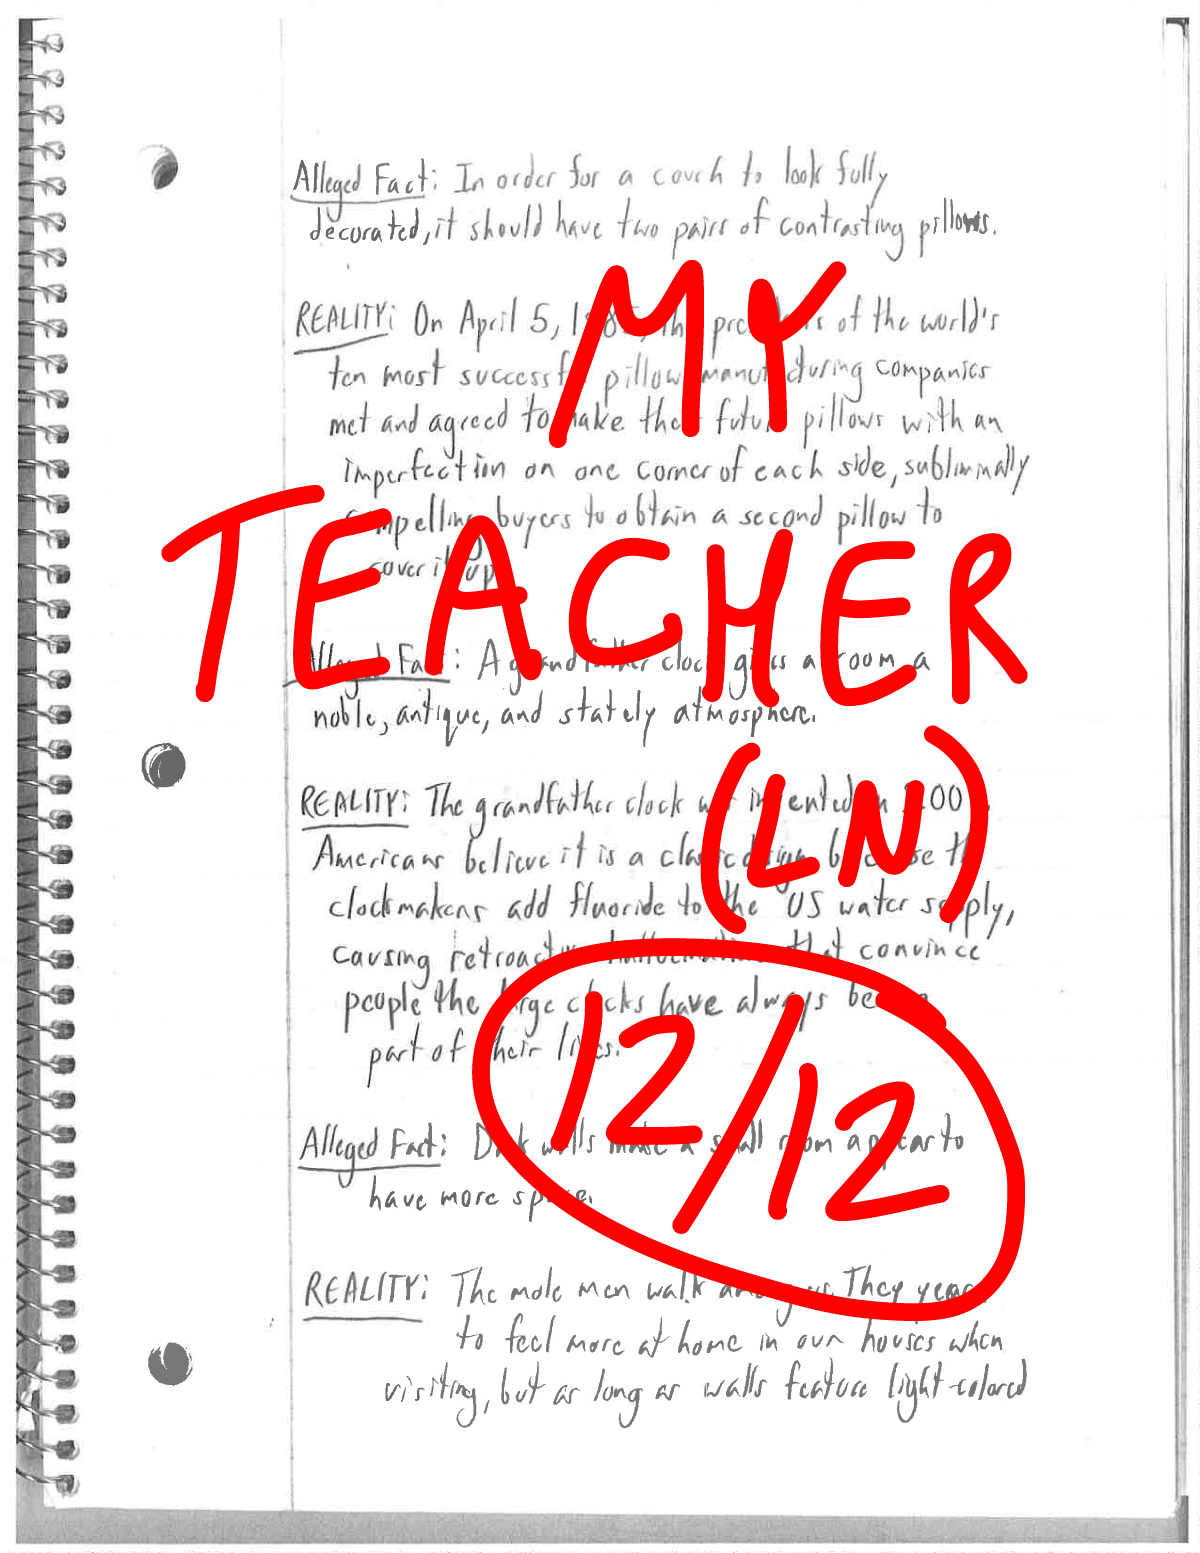 Alleged Fact: In order for a couch to look fully
decorated, it should have two pairs of contrasting pillows.
MY
REALITY: On April 5, the of the world's
ten most pillow manufacturing companies
met and agreed to make their future pillows with an
imperfection on one corner of each side, subliminally
compelling buyers to obtain a second pillow to
cover it up.
TEACHER
Alleged Fact: A grandfather clock gives a room a
noble, antique, and stately atmosphere.
(LN)
REALITY: The grandfather clock was invented in
Americans believe it is a classic design because the
clockmakers add fluoride to the US water supply,
causing retroactive hallucinations that convince
people the large clocks have always been
part of their lives.
12/12
Alleged Fact: Dark walls make a small room appear to
have more space.
REALITY: The mole men walk among us. They yearn
to feel more at home in our houses when
visiting, but as long as walls feature light-colored